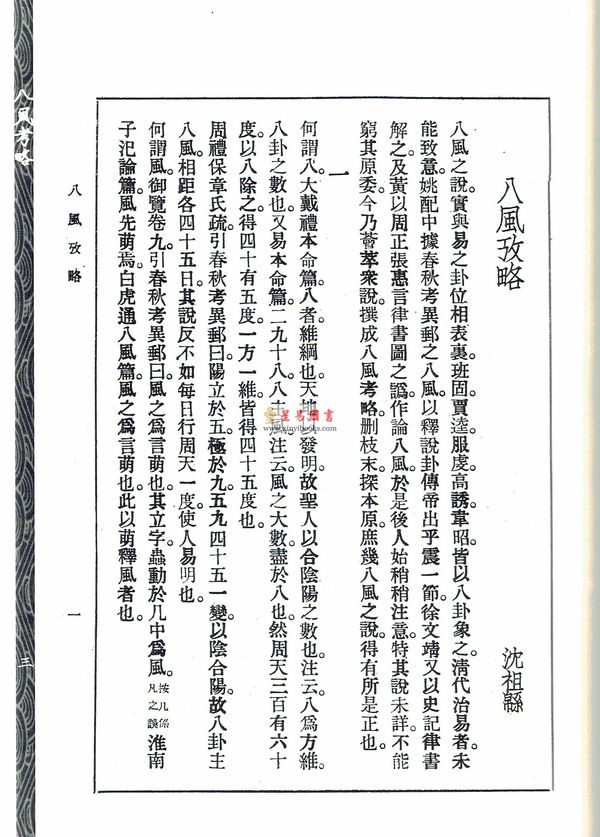 八風攷略
沈祖緜
八風之說。實與易之卦位相表裏。班固賈逵服虔高誘韋昭皆以八卦象之。清代治易者。未
能致意。姚配中據春秋考異郵之八風。以釋說卦傳帝出乎震一節。徐文靖又以史記律書
解之。及黃以周正張惠言律書圖之譌。作論八風。於是後人始稍稍注意。特其說未詳。不能
窮其原委。今乃薈萃衆說。撰成八風考略。刪枝末。探本原。庶幾八風之說。得有所是正也。
一
何謂八。大戴禮本命篇。八者維綱也。天地發明。故聖人以合陰陽之數也。注云八爲方維。
八卦之數也。又易本命篇。二九十八。八主風。注云。風之大數盡於八也。然周天三百有六十
度。以八除之。得四十有五度。一方一維。皆得四十五度也。
周禮保章氏疏。引春秋考異郵曰。陽立於五。極於九。五九四十五。一變以陰合陽。故八卦主
八風。相距各四十五日。其說反不如每日行周天一度。使人易明也。
何謂風。御覽卷九。引春秋考異郵曰。風之爲言萌也。其立字。蟲動於几中爲風。按几係凡之誤淮南
子氾論篇。風先萌焉。白虎通八風篇。風之爲言萌也。此以萌釋風者也。
八風攷略
一
八風考略
三
星易圖書
www.xinyibooks.com